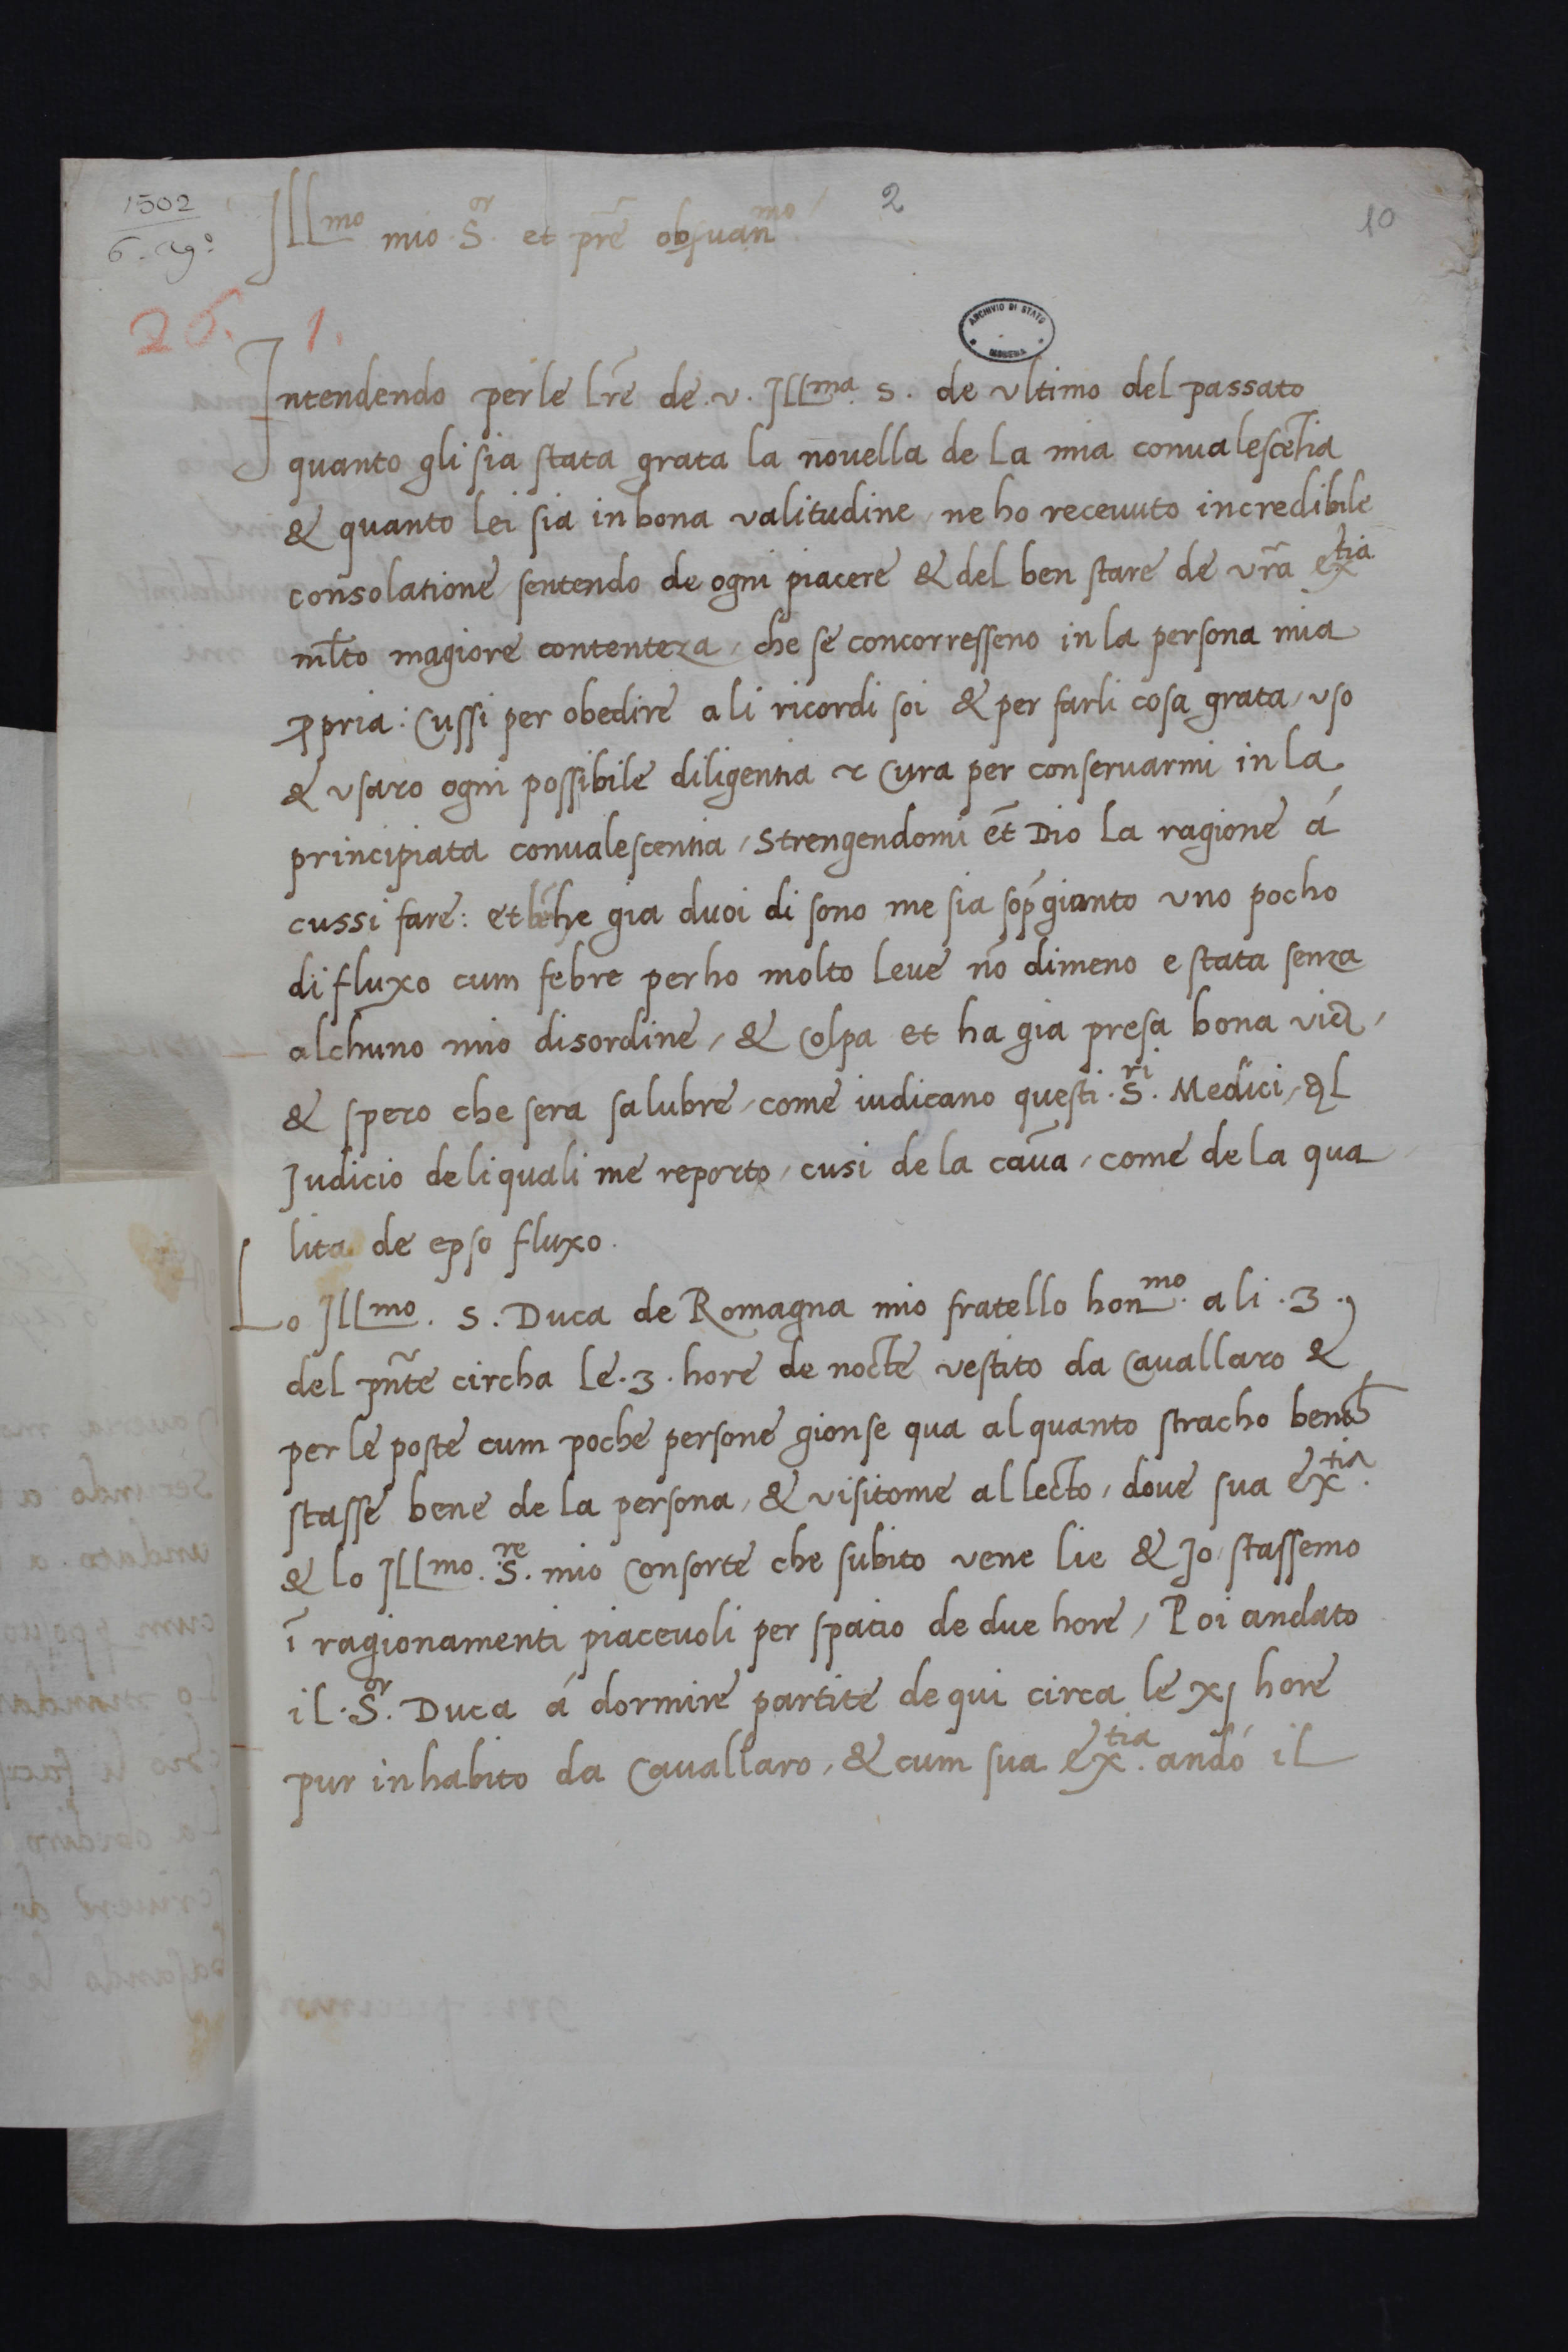 1502
6. Ag.º
2
10
Ill^mo mio S^or et pr̃e obsuan^mo
26. 1.
ARCHIVIO DI STATO
MODENA
Intendendo per le lr̃e de .v. Ill^ma. S. de ultimo del passato
quanto gli sia stata grata la nouella de la mia conualescẽtia
& quanto lei sia in bona valitudine / ne ho receuuto incredibile
consolatione / sentendo de ogni piacere & del ben stare de vr̃a ex^tia
ml̃to magiore contenteza / che se concorresseno in la persona mia
ꝓpria: Cussi per obedire a li ricordi soi & per farli cosa grata / uso
& usaro ogni possibile diligentia & Cura per conseruarmi in la
principiata conualescentia / Strengendomi et̃ Dio la ragione á
cussi fare: et bẽche gia duoi di sono me sia sop̃gionto uno pocho
di fluxo cum febre perho molto leue nõ dimeno e stata senza
alchuno mio disordine / & Colpa et ha gia presa bona via /
& spero che sera salubre / come iudicano questi .S^ri. Medici / al
Judicio de li quali me reporto / cusi de la cãua / come de la qua
lita de epso fluxo.
Lo Ill^mo. S. Duca de Romagna mio fratello hon^mo. a li .3.
del pñte circha le .3. hore de nocte vestito da Cauallaro &
per le poste cum poche persone gionse qua alquanto stracho bench
stasse bene de la persona / & visitome al lecto / doue sua ex^tia.
& lo Ill^mo. S^re. mio Consorte che subito vene lie & Jo stassemo
ĩ ragionamenti piaceuoli per spatio de due hore / Poi andato
il .S^or. Duca á dormire partite de qui circa le xj hore
pur in habito da Cauallaro / & cum sua ex^tia. andó il